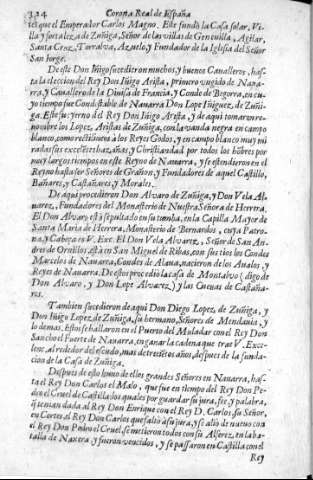 324 Corona Real de España
tes que el Emperador Carlos Magno. Este fundò la Casa solar, Vi-
lla y fortaleza de Zuñiga, Señor de las villas de Genevilla, Agilar,
Santa Cruz, Torralva, Azuelo, y Fundador de la Iglesia del Señor
San Jorge.
De este Don Iñigo sucedieron muchos, y buenos Cavalleros, has-
ta la eleccion del Rey Don Iñigo Arista, primero ungido de Nava-
rra, y Cavallero de la Divisa de Francia, y Conde de Begorra, en cu-
yo tiempo fue Condestable de Navarra Don Lope Iñiguez, de Zuñi-
ga. Este fue yerno del Rey Don Iñigo Arista, y de aqui tomaron re-
nombre los Lopez, Aristas de Zuñiga, con la vanda negra en campo
blanco, como veis linea à los Reyes Godos, y en campo blanco muy mi
radas sus excelētes hazañas, y Christiandad por todos los hōbres por
muy largos tiempos en este Reyno de Navarra, y se estendieron en el
Reyno hasta ser Señores de Grañon, y Fundadores de aquel Castillo,
Bañares, y Castañares y Morales.
De aqui procedieron Don Alvaro de Zuñiga, y Don Vela Al-
varez, Fundadores del Monasterio de Nuestra Señora de Herrera.
El Don Alvaro està sepultado en su tumba, en la Capilla Mayor de
Santa Maria de Herrera, Monasterio de Bernardos, cuya Patro-
na, y Cabeça es V. Exc. El Don Vela Alvarez, Señor de San An-
dres de Orcillos, està en San Miguel de Ribas, con sus tios los Condes
Marcelos de Navarra, Condes de Alava, nacieron de los Analos, y
Reyes de Navarra. De estos procediò la casa de Montalvo (digo de
Don Alvaro, y Don Lope Alvarez) y las Cuevas de Castaña-
res.
Tambien sucedieron de aqui Don Diego Lopez, de Zuñiga, y
Don Iñigo Lopez, de Zuñiga, su hermano, Señores de Mendavia, y
lo demas. Estos se hallaron en el Puerto del Muladar con el Rey Don
Sancho el Fuerte de Navarra, en ganar la cadena que trae V. Exce-
lenc. al rededor del escudo, mas de trescietos años, despues de la funda-
cion de la Casa de Zuñiga.
Despues de esto huvo de ellos grandes Señores en Navarra, has-
ta el Rey Don Carlos el Malo, que fue en tiempo del Rey Don Pe-
dro el Cruel de Castilla los quales por guardar su jura, fee, y palabra,
q̃ tenian dada al Rey Don Enrique con el Rey D. Carlos, su Señor,
en Cortes al Rey Don Carlos que faltò à su jura, y se aliò de nuevo con
el Rey Don Pedro el Cruel, se metieron todos con su Alferez, en la ba-
talla de Naxera, y fueron vencidos, y se passaron en Castilla con el
Rey